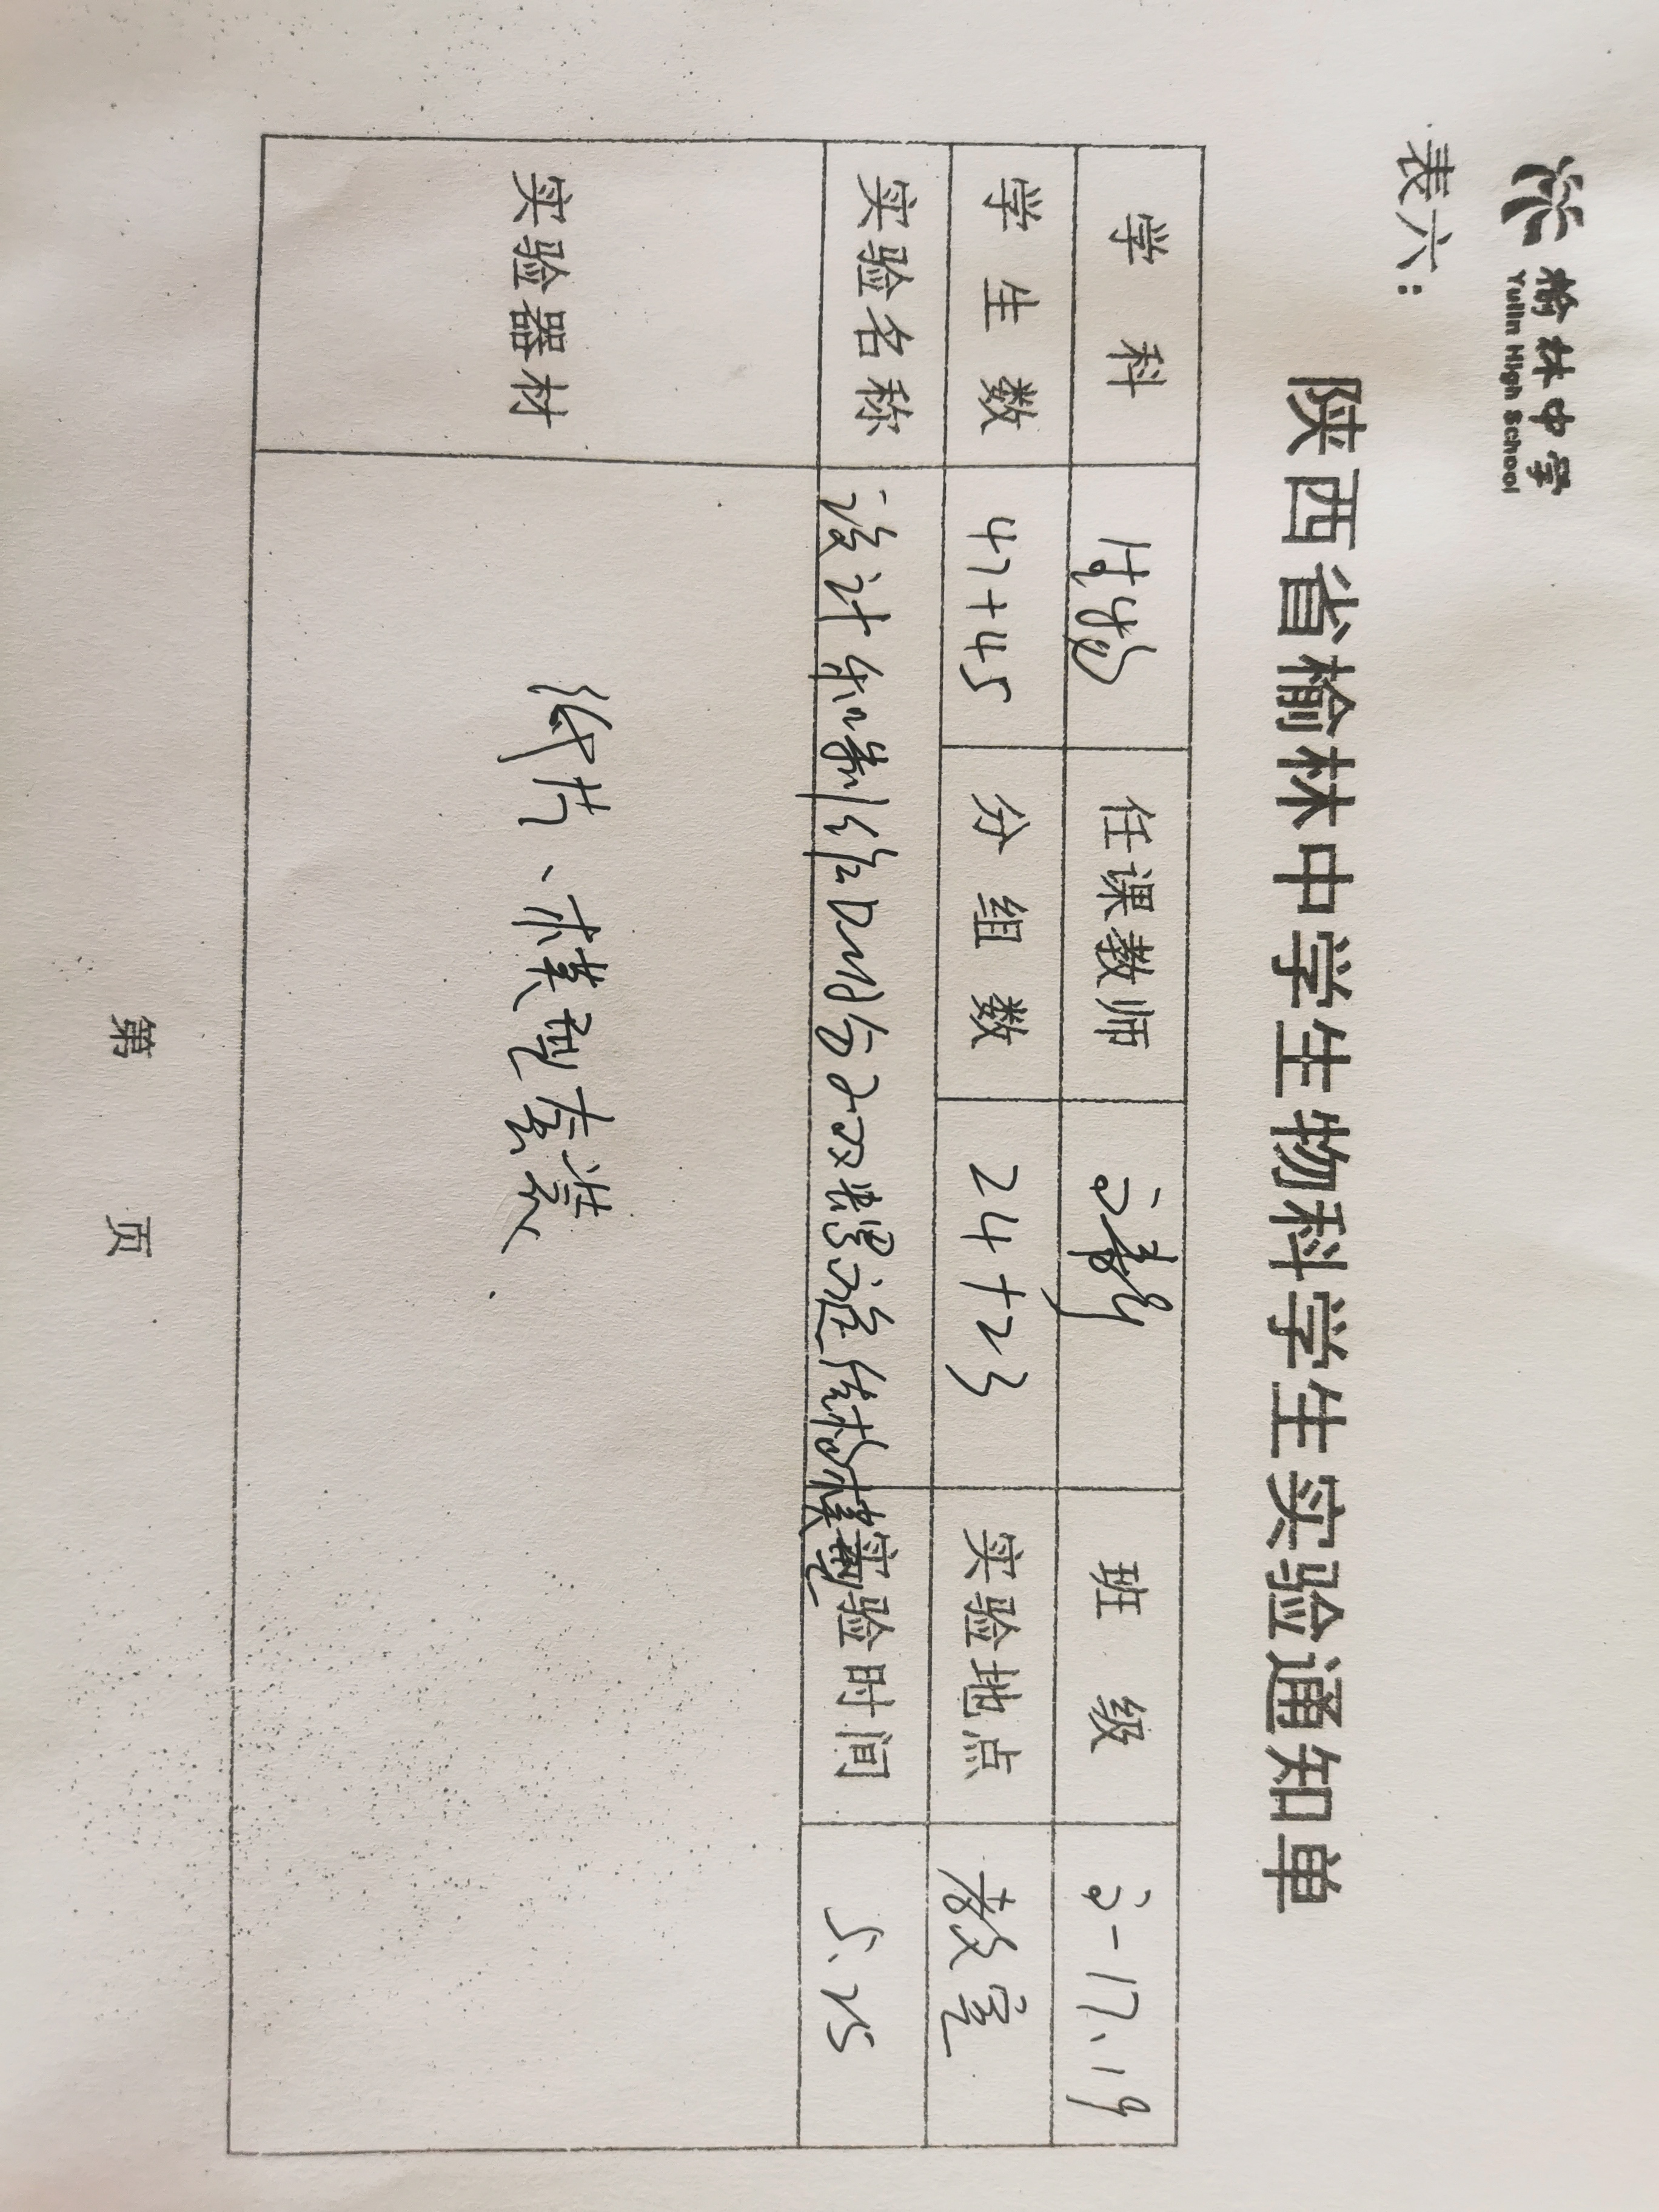 榆林中学
Yulin High School
表六：
陕西省榆林中学生物科学生实验通知单
学 科 生物 任课教师 班 级 高一17、19
学 生 数 47+45 分 组 数 24+23 实验地点 教室
实验名称 设计和制作DNA分子双螺旋结构模型 实验时间 5.25
实验器材 纸片、求模型套装
第 页